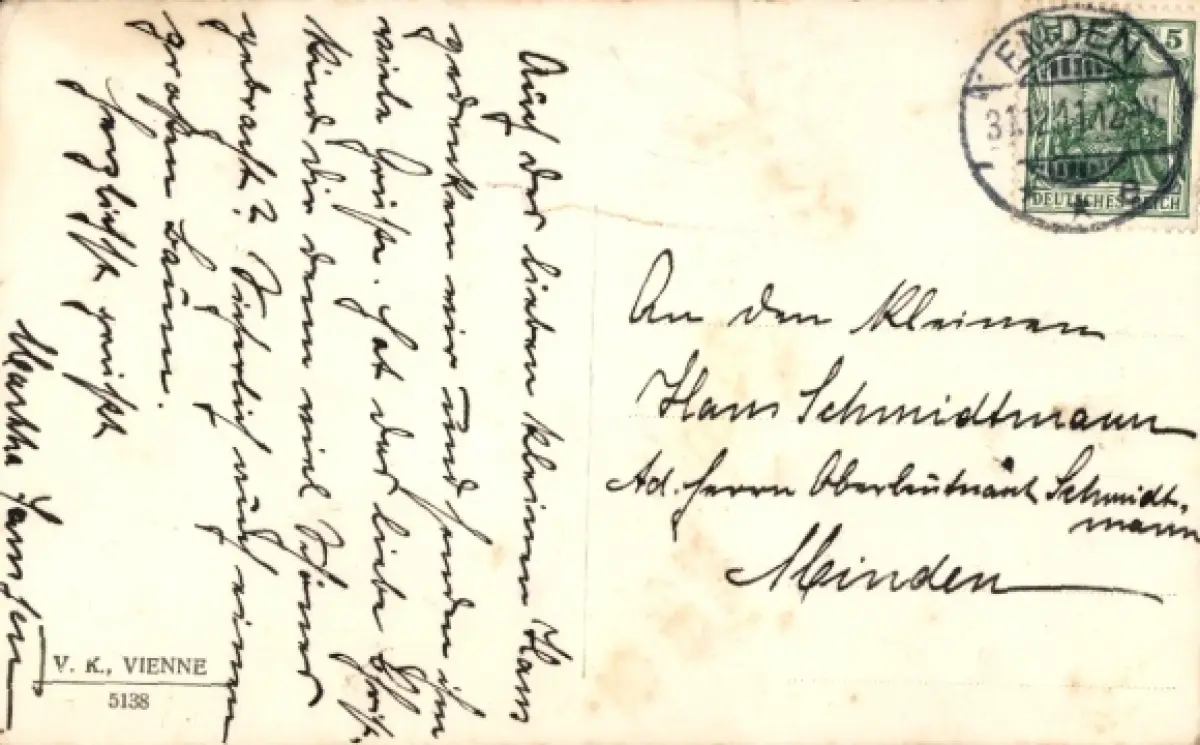 Auch des lieben kleinen Hans
gedenken wir und senden ihm
viele Grüße. Hat das liebe Christ-
kind dir denn viel Schönes
gebracht? Sicherlich auch einen
großen Baum.
Herzlichst grüßt
Martha Janssen
V. K., VIENNE
5138
EMDEN
31.12.11.12-
5
DEUTSCHES REICH
An den kleinen
Hans Schmidtmann
Ad. Herrn Oberleutnant Schmidt-
mann
Minden